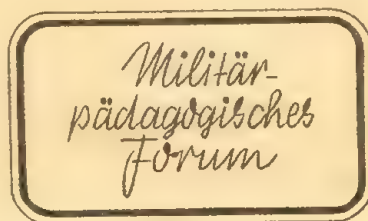 Militär-
pädagogisches
Forum